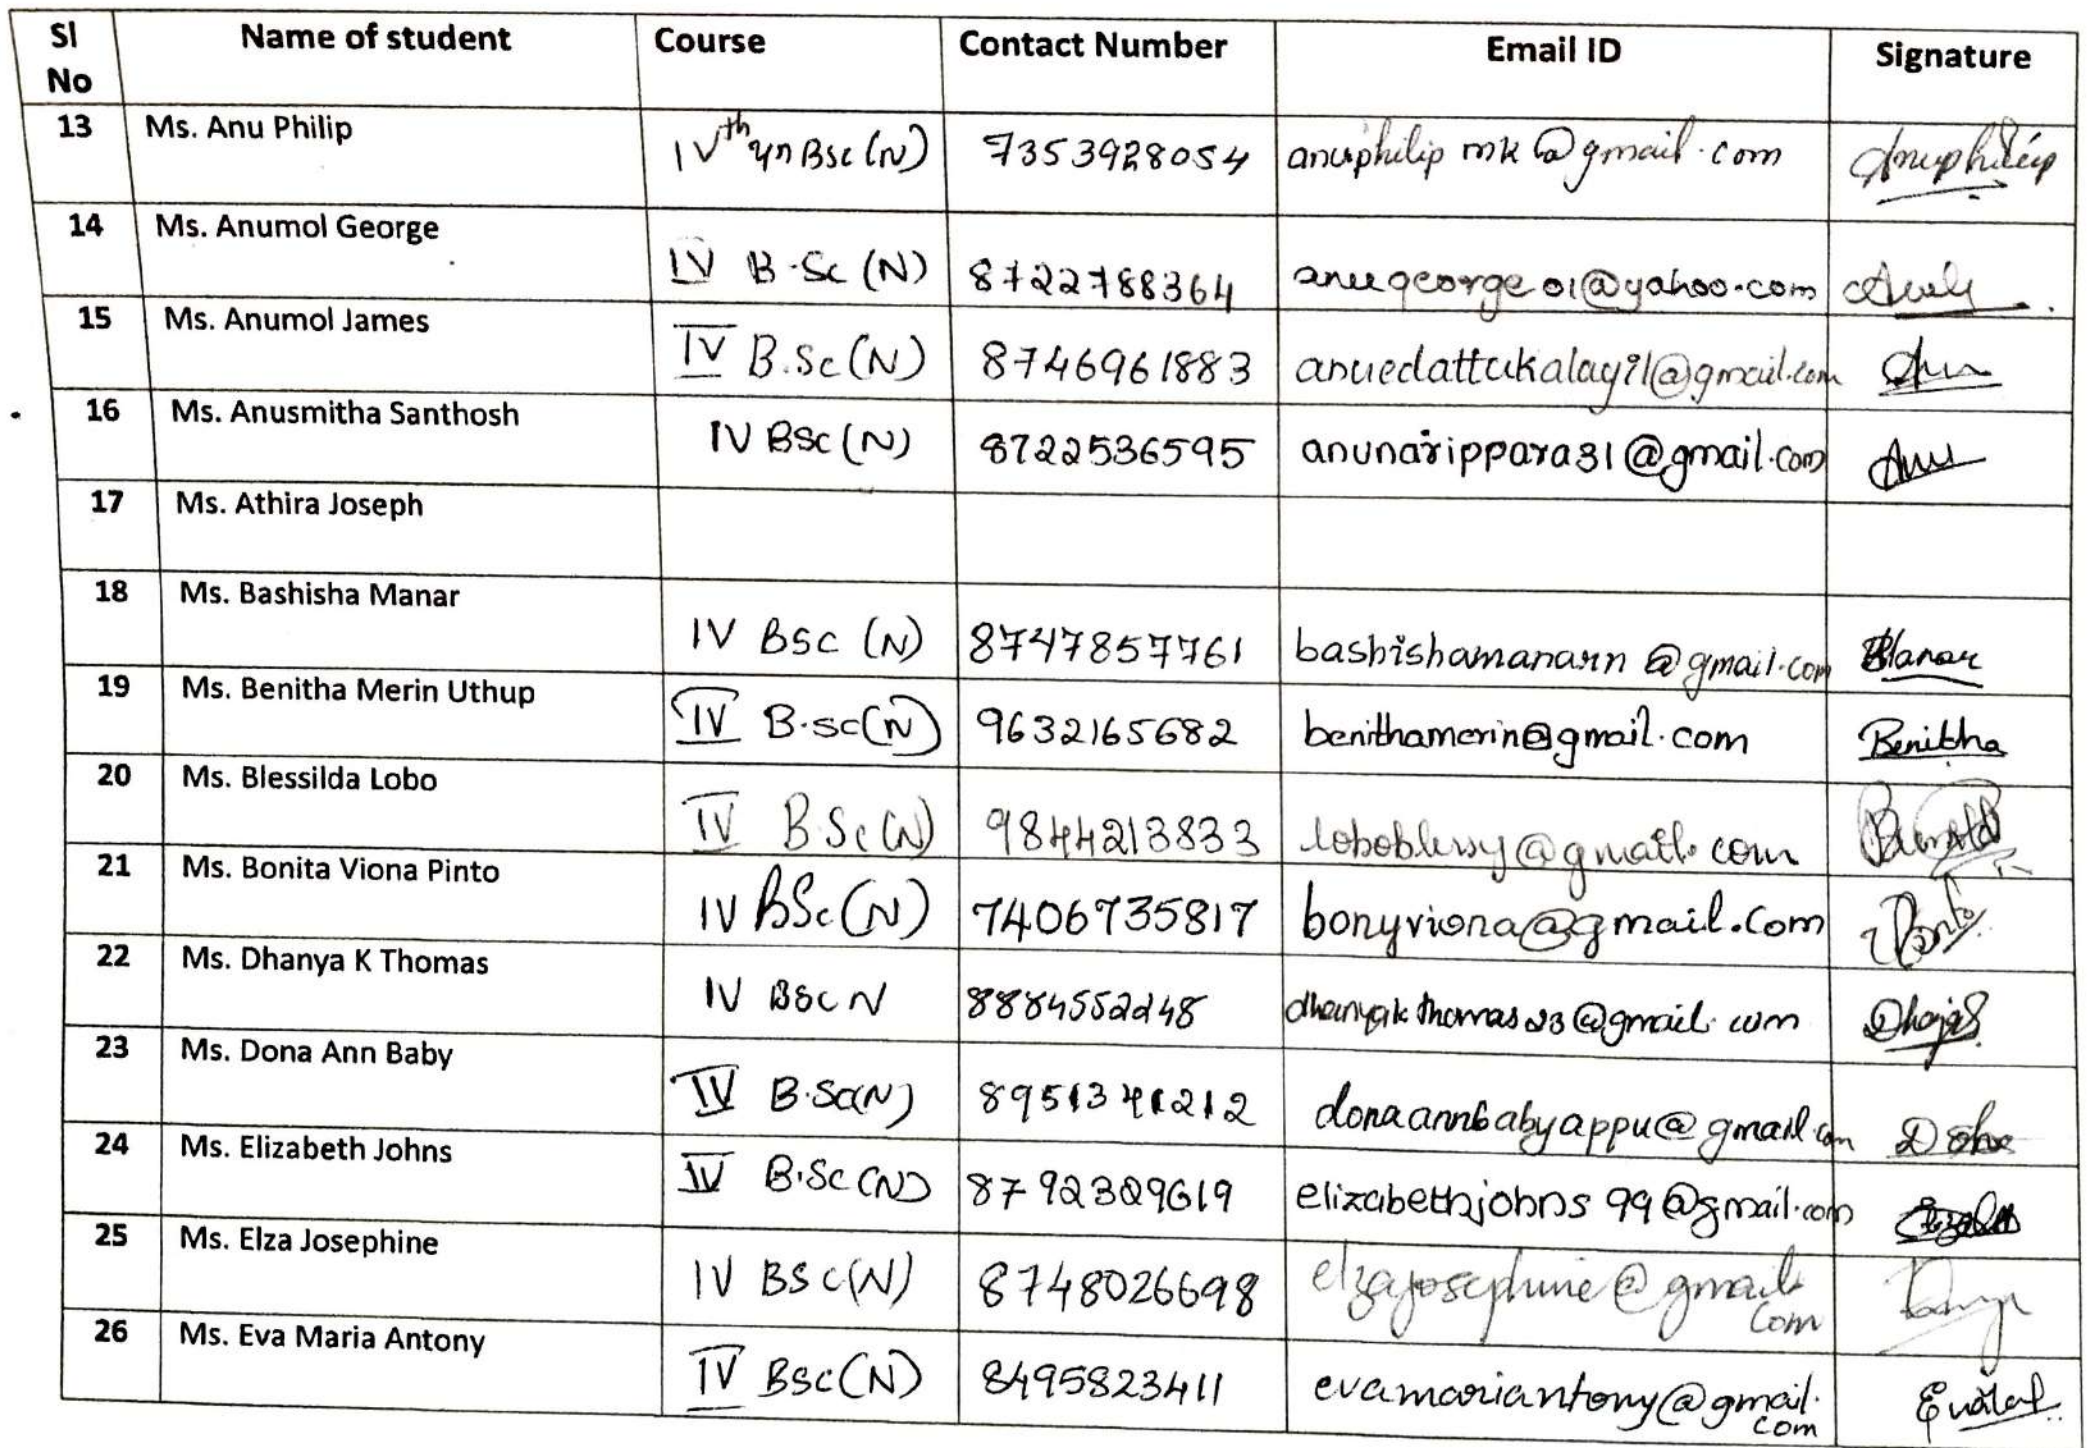 Sl No Name of student Course Contact Number Email ID Signature
13 Ms. Anu Philip IVth yr Bsc (N) 7353928054 anuphilip mk @gmail.com Anuphilip
14 Ms. Anumol George IV B.Sc (N) 8722788364 anugeorge01@yahoo.com
15 Ms. Anumol James IV B.Sc (N) 8746961883 anuedattukalayil@gmail.com Anu
16 Ms. Anusmitha Santhosh IV BSc (N) 8722536595 anunarippara31@gmail.com Anu
17 Ms. Athira Joseph
18 Ms. Bashisha Manar IV BSC (N) 8747857761 bashishamanarn @gmail.com BManar
19 Ms. Benitha Merin Uthup IV B.sc(N) 9632165682 benithamerin@gmail.com Benitha
20 Ms. Blessilda Lobo IV B.Sc (N) 9844213833 loboblessy@gmail.com
21 Ms. Bonita Viona Pinto IV BSc (N) 7406735817 bonyviona@gmail.com
22 Ms. Dhanya K Thomas IV BSC N 8884552248 dhanyak thomas23@gmail.com
23 Ms. Dona Ann Baby IV B.Sc(N) 8951341212 donaannbabyappu@gmail.com Dona
24 Ms. Elizabeth Johns IV B.Sc (N) 8792309619 elizabethjohns 99@gmail.com
25 Ms. Elza Josephine IV BSc(N) 8748026698 elzajosephine@gmail.
com
26 Ms. Eva Maria Antony IV BSc(N) 8495823411 evamariantony@gmail.
com